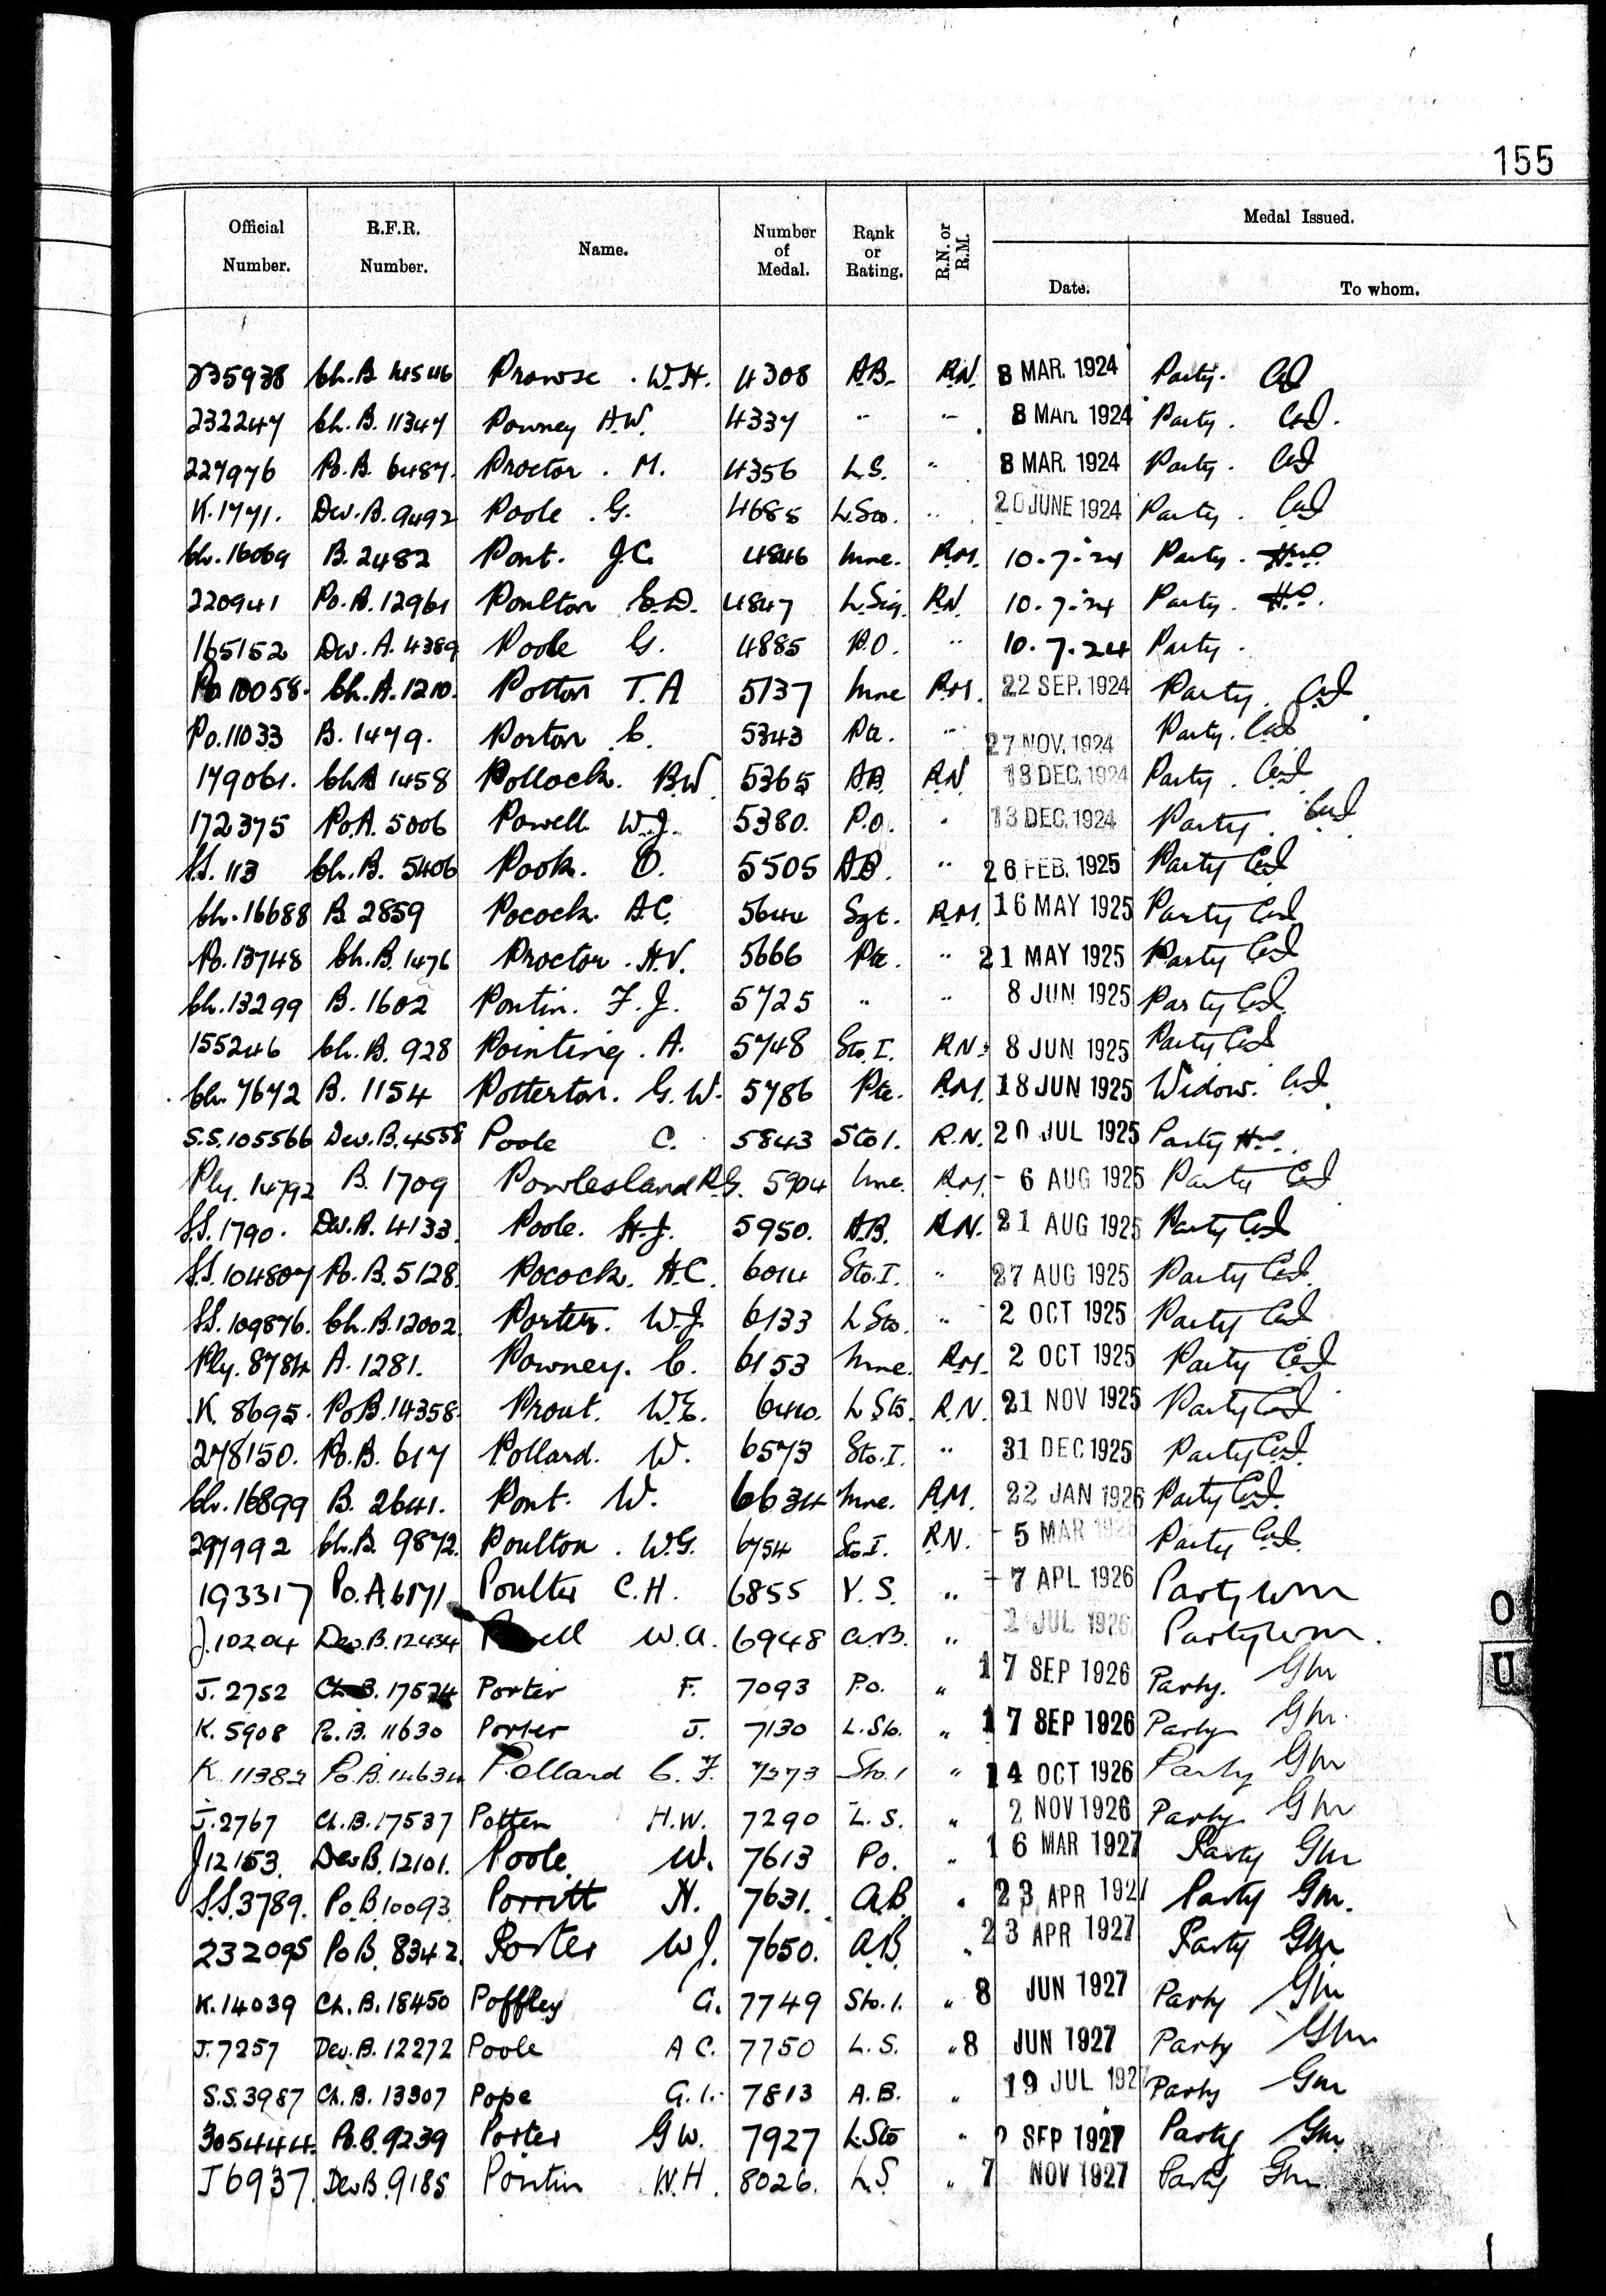 155
Official Number. R.F.R. Number. Name. Number of Medal. Rank or Rating. R.N. or R.M. Medal Issued. Date. To whom.
235938 Ch.B. 14546 Prowse . W.H. 4308 A.B. R.N. 8 MAR. 1924 Party.
232247 Ch. B. 11347 Powney A.W. 4337 " " 8 MAR. 1924 Party.
227976 Po. B. 6487. Proctor . M. 4356 L.S. " 8 MAR. 1924 Party.
K. 1771. Dev. B. 9492 Poole . G. 4685 L.Sto. " 20 JUNE 1924 Party.
Ch. 16069 B. 2482 Pont. J.C. 4846 Mne. R.M. 10.7.24 Party.
220941 Po. B. 12961 Poulton E.D. 4847 L.Sig. R.N. 10.7.24 Party.
165152 Dev. A. 4389 Poole G. 4885 P.O. " 10.7.24 Party.
Po 10058. Ch. A. 1210. Potton T.A 5137 Mne R.M. 22 SEP. 1924 Party.
Po. 11033 B. 1479. Porton C. 5343 Pte. " 27 NOV. 1924 Party.
179061. Ch.B 1458 Pollock. B.W. 5365 A.B. R.N. 13 DEC. 1924 Party.
172375 Po.A. 5006 Powell W.J. 5380. P.O. " 13 DEC. 1924 Party.
S.S. 113 Ch. B. 5406 Pook. O. 5505 A.B. " 26 FEB. 1925 Party
Ch. 16688 B. 2859 Pocock. A.C. 5644 Sgt. R.M. 16 MAY 1925 Party
Po. 13748 Ch. B. 1476 Proctor . H.V. 5666 Pte. " 21 MAY 1925 Party
Ch. 13299 B. 1602 Pontin. F.J. 5725 " " 8 JUN 1925 Party
155246 Ch. B. 928 Pointing . A. 5748 Sto. I. R.N. 8 JUN 1925 Party
Ch. 7672 B. 1154 Potterton. G.W. 5786 Pte. R.M. 18 JUN 1925 Widow.
S.S. 105566 Dev. B. 4558 Poole C. 5843 Sto 1. R.N. 20 JUL 1925 Party
Ply. 14792 B. 1709 Powlesland R.G. 5904 Mne. R.M. - 6 AUG 1925 Party
S.S. 1790. Dev. B. 4133. Poole. H.J. 5950. A.B. R.N. 21 AUG 1925 Party
S.S. 104807 Po. B. 5128. Pocock. H.C. 6014 Sto. I. " 27 AUG 1925 Party
S.S. 109876. Ch. B. 12002. Porter. W.J. 6133 L Sto. " 2 OCT 1925 Party
Ply. 8784 A. 1281. Powney. C. 6153 Mne. R.M. 2 OCT 1925 Party
K. 8695. Po B. 14358. Prout. W.E. R.N. 21 NOV 1925 Party
278150. Po. B. 617 Pollard. W. 6573 Sto. I. " 31 DEC 1925 Party
Ch. 16899 B. 2641. Pont. W. 6634 Mne. R.M. 22 JAN 1926 Party
297992 Ch. B. 9872. Poulton . W.G. 6754 Sto I. R.N. - 5 MAR 1926 Party
193317 Po. A. 6171 Poulter C.H. 6855 Y.S. " - 7 APL 1926 Party
J. 10204 Dev. B. 12434 W.A. 6948 A.B. " JUL 1926 Party
J. 2752 Ch. B. Porter F. 7093 P.O. " 17 SEP 1926 Party.
K. 5908 Po. B. 11630 Porter J. 7130 L. Sto. " 17 SEP 1926 Party
K 11382 Po. B. 14634 Pollard C.F. 7273 Sto. 1 " 14 OCT 1926 Party
J. 2767 Ch. B. 17537 Potten H.W. 7290 L.S. " 2 NOV 1926 Party
J 12153. Dev B. 12101. Poole W. 7613 Po. " 16 MAR 1927 Party
S.S. 3789. Po. B. 10093. Porritt H. 7631. A.B. " 23 APR 1927 Party
232095 Po B. 8342. Porter W.J. 7650. A.B. " 23 APR 1927 Party
K. 14039 Ch. B. 18450 Poffley G. 7749 Sto. 1. " 8 JUN 1927 Party
J. 7257 Dev. B. 12272 Poole A C. 7750 L.S. " 8 JUN 1927 Party
S.S. 3987 Ch. B. 13307 Pope G.I. 7813 A.B. " 19 JUL 1927 Party
305444. Po. B. 9239 Porter G W. 7927 L.Sto " SEP 1927 Party
J 6937. Dev B. 9185 Pontin W.H. 8026. L.S " 7 NOV 1927 Party